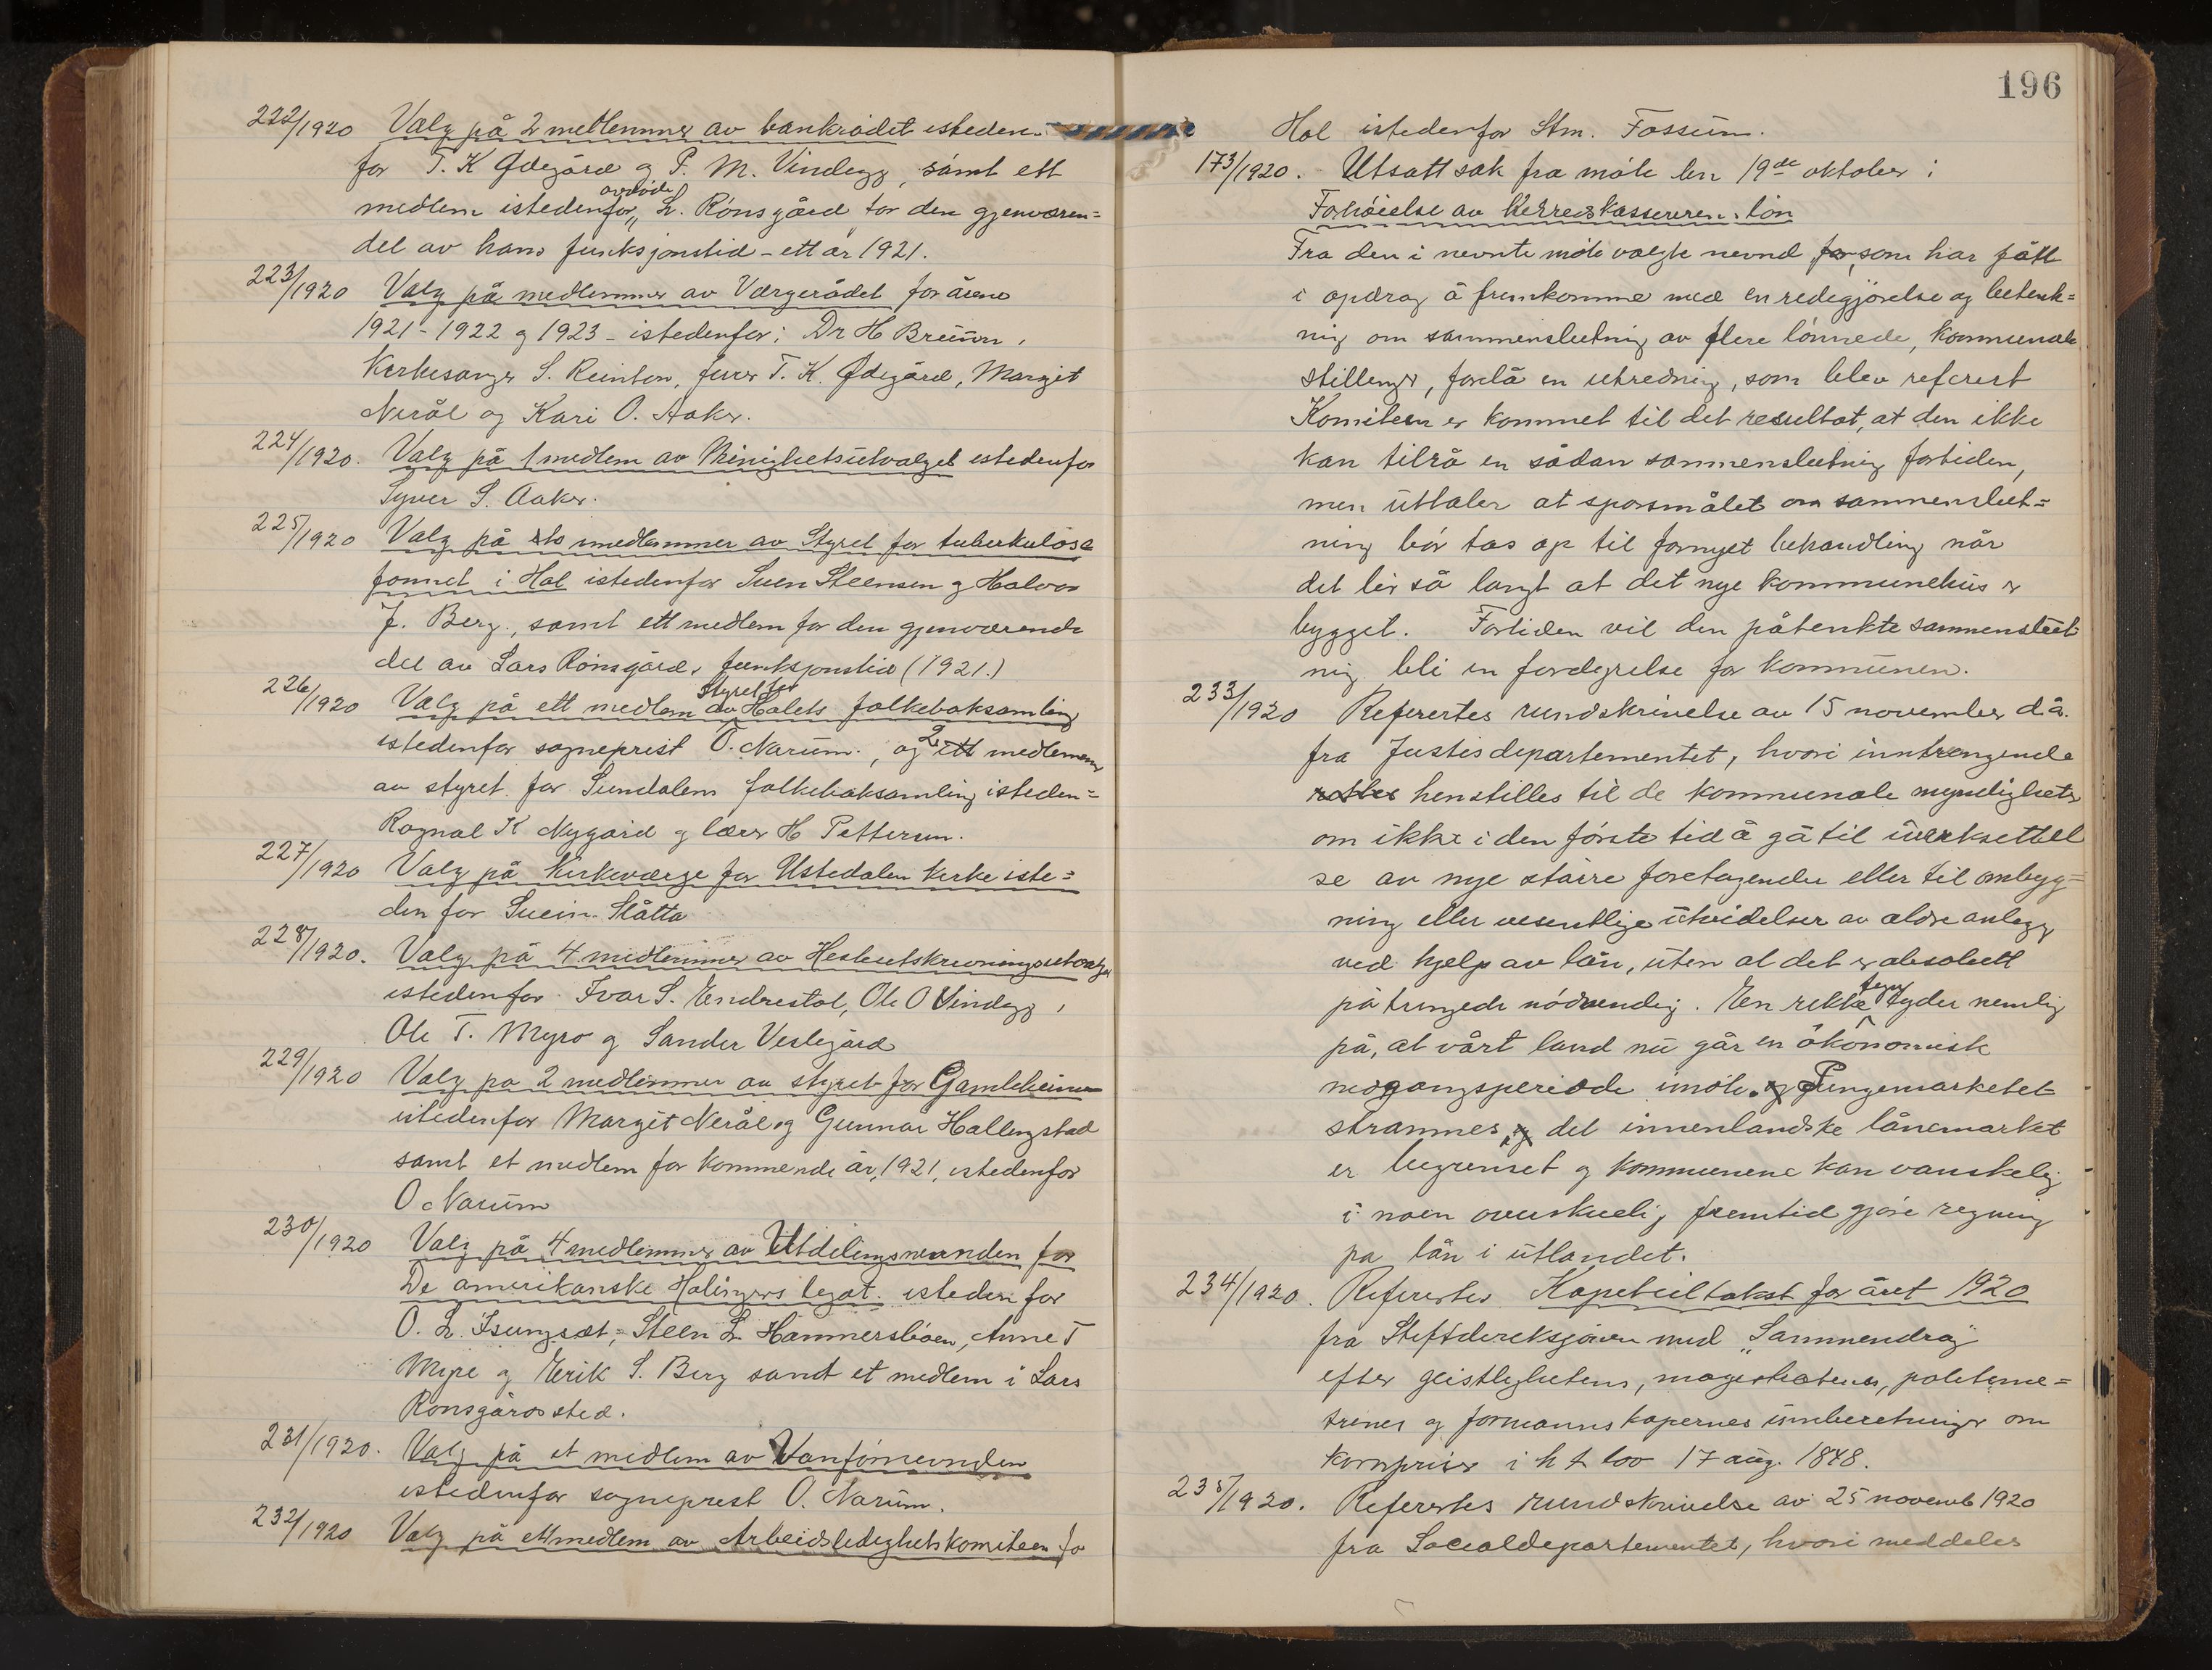 222/1920 Valg på 2 medlemmer av bankrådet isteden-
for T. K Ødegård og P. M. Vindegg, samt ett
medlem istedenfor avdøde L. Rønsgård for den gjenværen=
del av hans funksjonstid - ett år 1921.
223/1920 Valg på medlemmer av Værgerådet for årene
1921 - 1922 og 1923 - istedenfor: Dr H Breünn,
Kirkesanger S. Reinton, T. K. Ødegård, Margit
Nerål og Kari O. Aaker.
224/1920. Valg på 1 medlem av istedenfor
Syver S. Aaker.
225/1920 Valg på to medlemmer av Styret for tuberkuløse
i Hol istedenfor Svein Steensen og Halvor
J. Berg., samt ett medlem for den gjenværende
del av Lars Rønsgårds funksjonstid (1921.)
226/1920 Valg på ett medlem av styret for Holets folkeboksamling
istedenfor sogneprest O. Narüm., og 2 ett medlemmer
av styret for Sundalens folkeboksamling isteden=
Ragnal K Nygård og lærer H Pettersen.
227/1920 Valg på Kirkeværge for Ustedalen kirke iste=
den for Svein Slåtta
228/1920. Valg på 4 medlemmer av Hesteutskrivningsutvalget
istedenfor Ivar S. Endrestol, Ole O Vindegg,
Ole T. Myro og Sander Veslegård
229/1920 Valg på 2 medlemmer av styret for Gamleheimen
istedenfor Margit Nerål og Gunnar Hallingstad
samt et medlem for kommende år, 1921, istedenfor
O Narüm
230/1920 Valg på 4 medlemmer av Utdelingsnevnden for
De amerikanske Holingers legat. isteden for
O. L. Isungset, Steen L. Hammersbøen, Anne T
Mype og Erik S. Berg samt et medlem i Lars
Rønsgårds sted.
231/1920. Valg på et medlem av Vanførnevnden
istedenfor sogneprest O. Narüm.
232/1920 Valg på ett medlem av Arbeidsledighetskomiteen for
196
Hol istedenfor Stm. Fossüm.
173/1920. Utsatt sak fra møte den 19de oktober i
Forhøielse av herredskassererens løn
Fra den i nevnte møte valgte nevnd for, som har fått
i opdrag å fremkomme med en redegjørelse og betenk=
ning om sammenslutning av flere lønnede, kommunale
stillinger, forelå en utredning, som blev referert
Komiteen er kommet til det resultat, at den ikke
kan tilrå en sådan sammenslutning fortiden,
men üttaler at spørsmålet om sammenslut=
ning bør tas op til fornyet behandling når
det lir så langt at det nye kommunehüs er
bygget. Fortiden vil den påtenkte sammenslüt-
ning bli en fordyrelse for kommünen.
233/1920 Refertes rundskrivelse av 15 november d.å.
fra Justisdepartementet, hvori inntrengende
rettes henstilles til de kommunale myndigheter
om ikke i den første tid å gå til iverksettel
se av nye større foretagender eller til ombyg=
ning eller vesentlige ütvidelser av eldre anlegg
ved hjelp av lån, üten at det er absolutt
påtrengede nødvendig. En rekke tegn tyder nemlig
på, at vårt land nü går en økonomisk
nedgangsperiode imøte. og Pengemarkedet
strammes, og det innenlandske lånemarket
er begrenset og kommunene kan vanskelig
i noen overskuelig fremtid gjøre regning
på lån i ütlandet.
234/1920. Refertes Kapiteltakst for året 1920
fra Stiftdireksjonen med "Sammendrag
efter geistlighetens, magistratens, politime=
strenes og formannskapernes innberetninger om
kornpriser i h t lov 17 aüg. 1848.
235/1920. Refertes rundskrivelse av 25 novemb 1920
fra Socialdepartementet, hvori meddeles